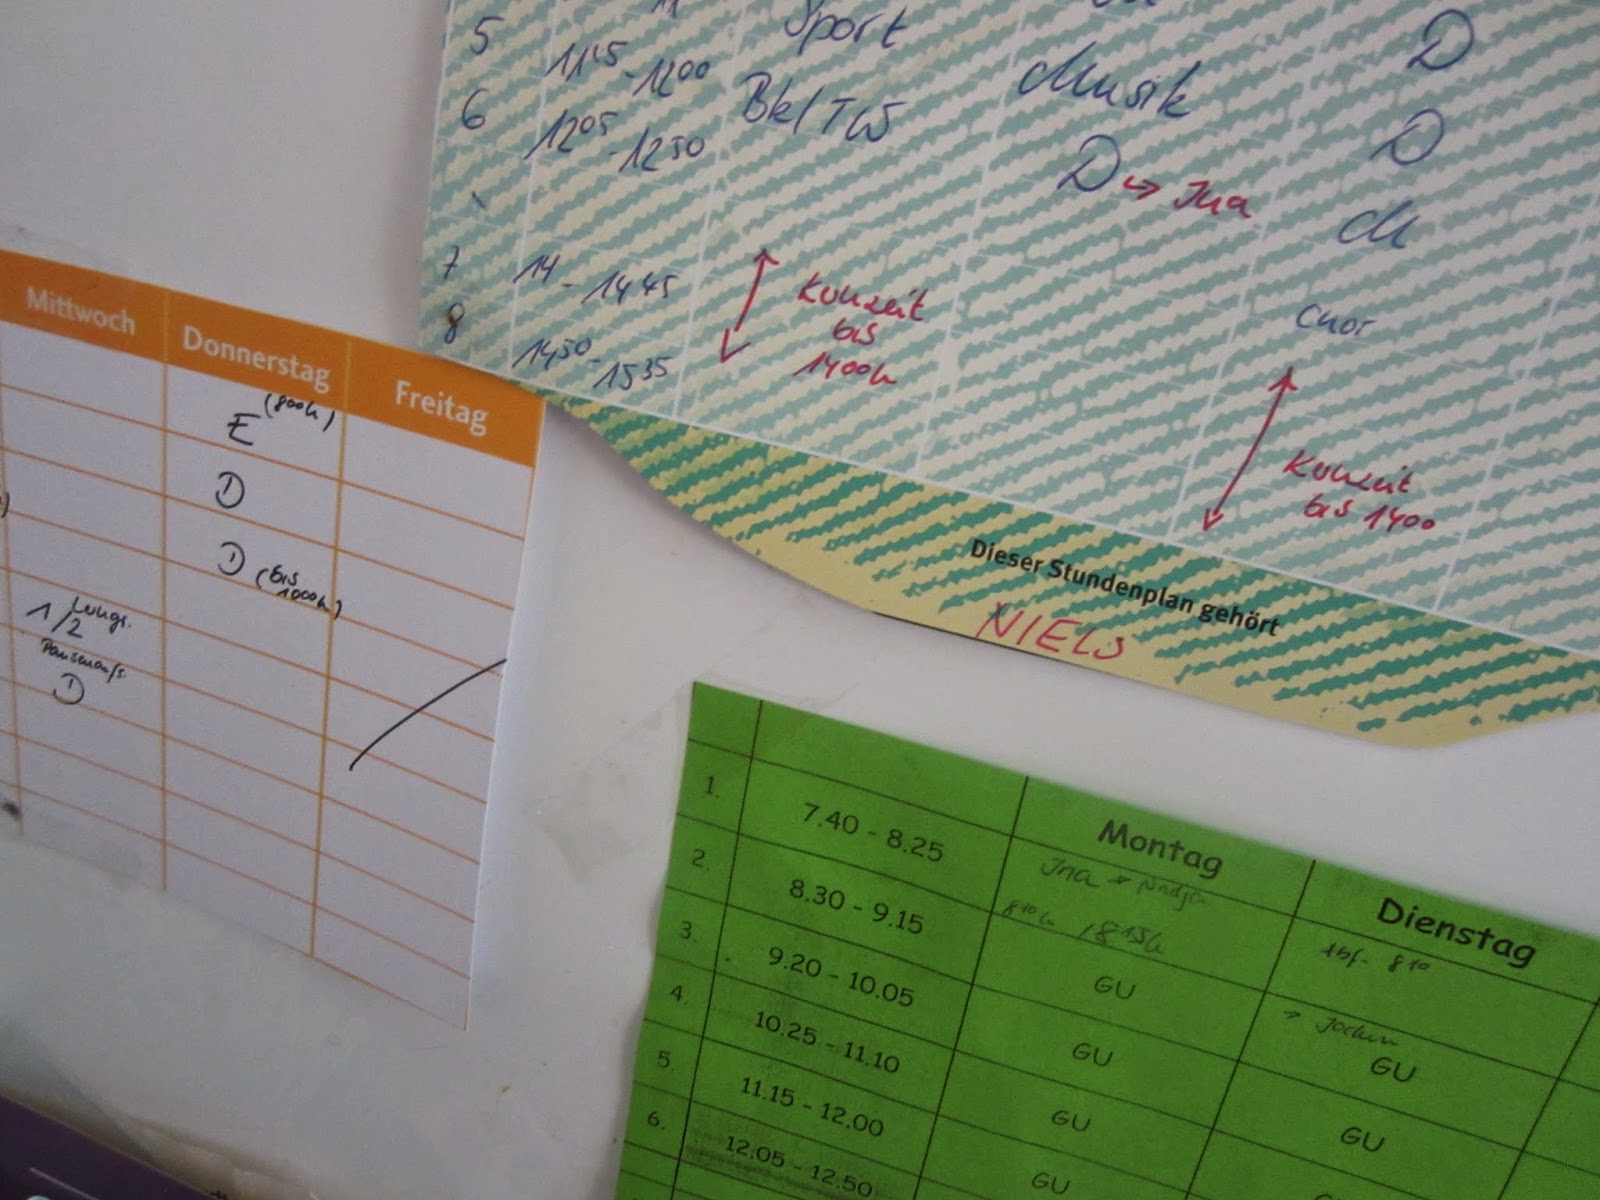 5 11 15 - 12 00 Sport Musik D
6 12 05 - 12 50 Bk/TW D → Ina D
M
7 14 - 14 45
8 14 50 - 15 35
Kurzzeit
bis
14 00 h
Chor
Kurzzeit
bis 14 00
Dieser Stundenplan gehört
NIELS
Mittwoch Donnerstag Freitag
E (8 00 h)
D
D (bis
10 00 h)
1/2
D
Montag Dienstag
1. 7.40 - 8.25 Ina + Nadja Abf. 8 10
2. 8.30 - 9.15 8 10 h / 8 15 h → Jochen
3. 9.20 - 10.05 GU GU
4. 10.25 - 11.10 GU GU
5. 11.15 - 12.00 GU
6. 12.05 - 12.50 GU